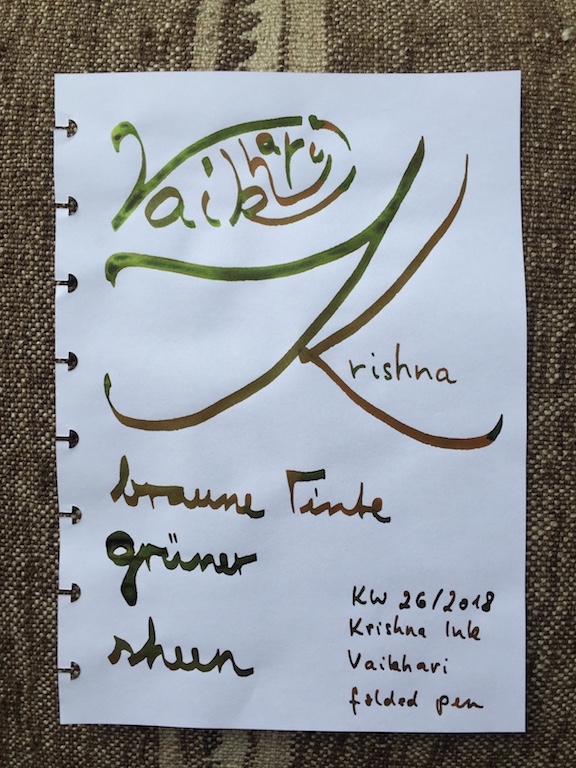 Vaikhari
Krishna
braune Tinte
grüner
sheen
KW 26/2018
Krishna Ink
Vaikhari
folded pen